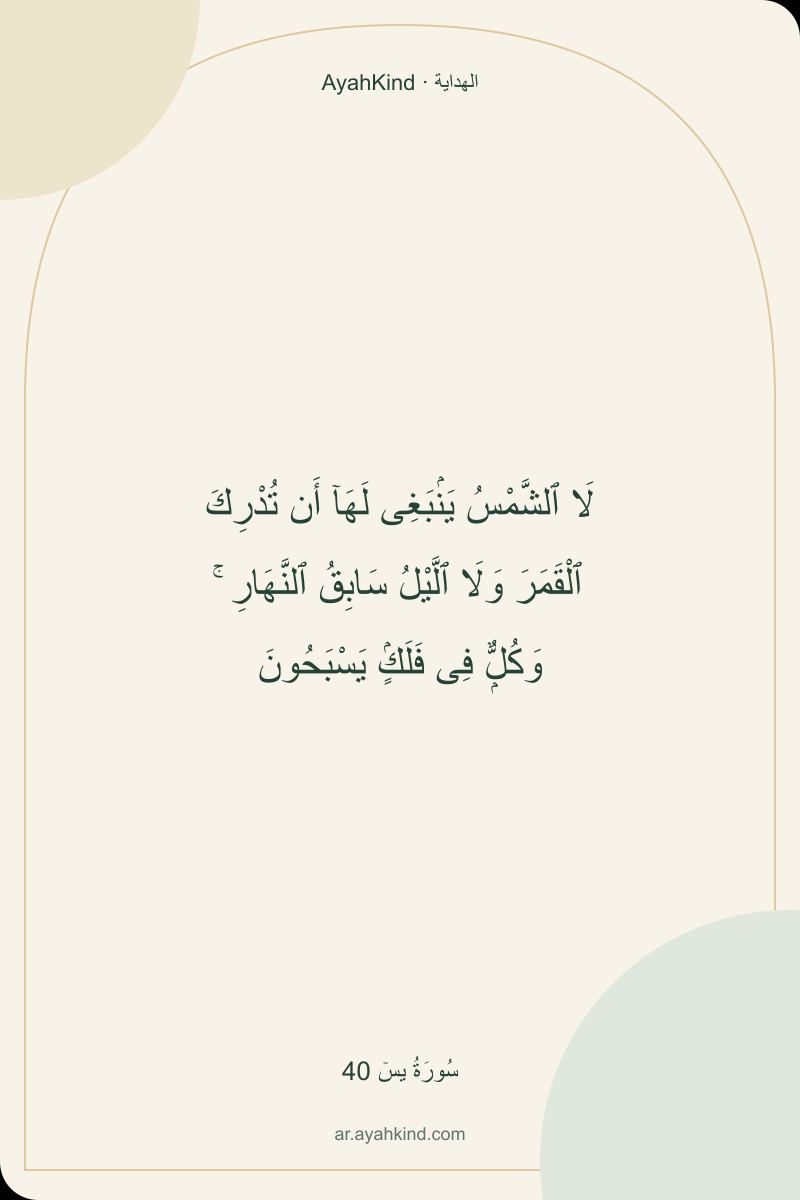 AyahKind · الهداية
لَا ٱلشَّمْسُ يَنۢبَغِى لَهَآ أَن تُدْرِكَ
ٱلْقَمَرَ وَلَا ٱلَّيْلُ سَابِقُ ٱلنَّهَارِ ۚ
وَكُلٌّۭ فِى فَلَكٍۢ يَسْبَحُونَ
سُورَةُ يسٓ 40
ar.ayahkind.com